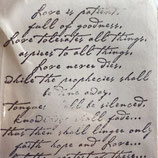 Love is patient,
full of goodness,
Love tolerates all things,
aspires to all things,
Love never dies,
while the prophecies shall
be done away,
tongues shall be silenced,
knowledge shall fade...
thus then shall linger only
faith hope and love...
these